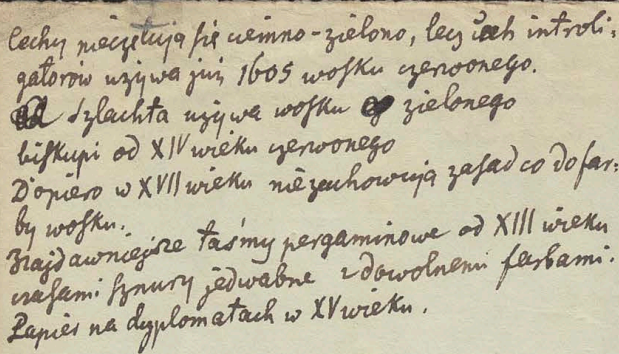 Cechy pieczętują się ciemno-zielono, lecz cech introli-
gatorów używa już 1605 wosku czerwonego.
Szlachta używa wosku zielonego
biskupi od XIV wieku czerwonego
Dopiero w XVII wieku nie zachowują zasad co do far-
by wosku.
Najdawniejsze taśmy pergaminowe od XIII wieku
czasami sznury jedwabne z dowolnemi farbami.
Papier na dyplomatach w XV wieku.